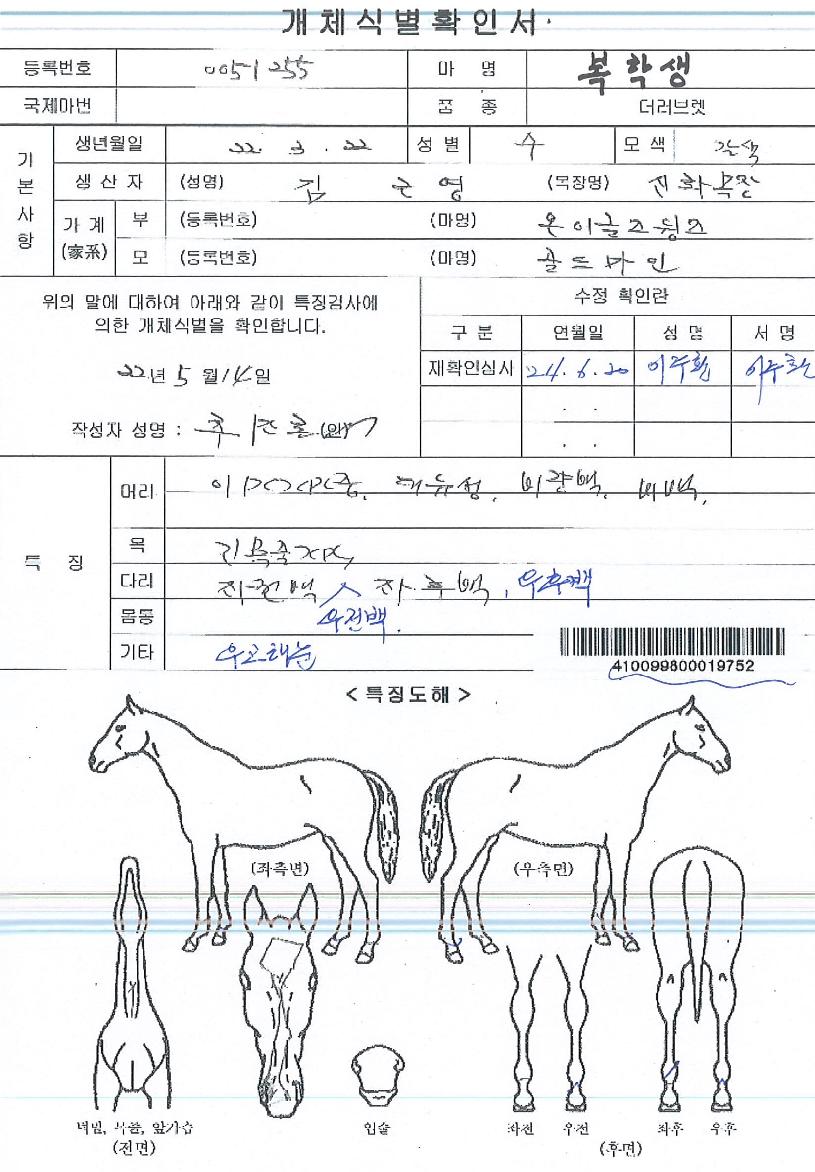 개체식별확인서
등록번호 0051255 마 명 복학생
국제마번 품 종 더러브렛
기본사항
생년월일 22. 3. 22 성 별 수 모 색 갈색
생 산 자 (성명) 김 근 영 (목장명)
가 계 (家系) 부 (등록번호) (마명) 온이글즈윙즈
모 (등록번호) (마명) 골드마인
위의 말에 대하여 아래와 같이 특징검사에
의한 개체식별을 확인합니다.
22년 5 월 14일
작성자 성명 : (인)
수정 확인란
구 분 연월일 성 명 서 명
재확인심사 24. 6. 20 이주환 이주환
특 징
머리 비량백, 비백,
목
다리 좌후백, 우후백
우전백.
몸통
기타
410099800019752
< 특징도해 >
(좌측면) (우측면)
턱밑, 목줄, 앞가슴
(전면)
입술
좌전 우전 좌후 우후
(후면)